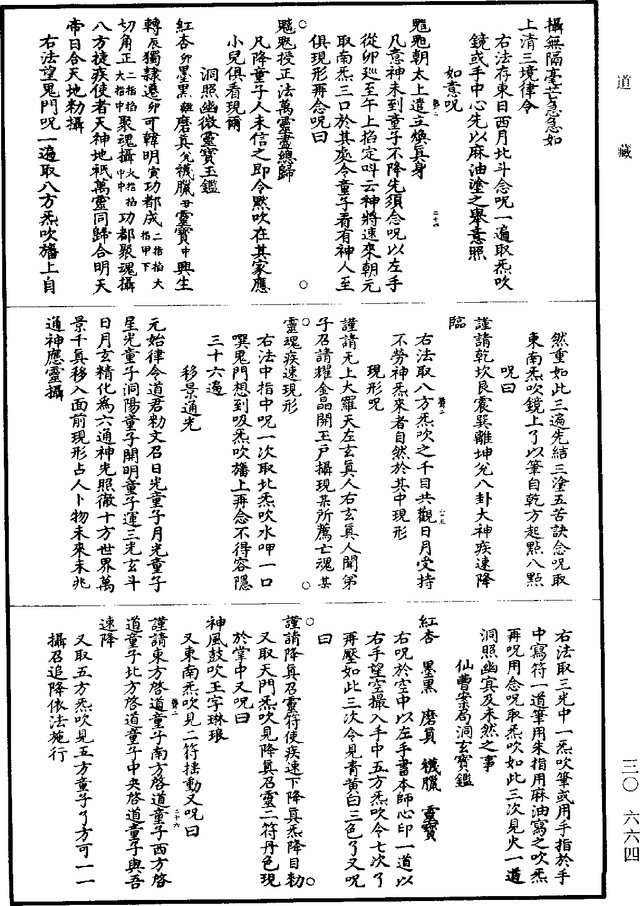 攝無隔毫芒急急如
上清三境律令
右法存東日西月北斗念呪一遍取炁吹
鏡或手中心先以麻油塗之舉意照
如意呪
魒魒朝太上遣立煥眞身
凡意神未到童子不降先須念呪以左手
從卯巡至午上掐定呌云神將速來朝元
取南炁三口於其處令童子看有神人至
俱現形再念呪曰
魒魒授正法萬靈盡總歸
凡降童子人未信之即令黙吹在其家應
小兒俱看現爾
洞照幽微靈寶玉鑑
紅杏卯墨黑 磨眞 兊機臘丑靈寶中興生
轉辰獨隸遜卯可韓明寅功都成二指掐大指甲下
切角正二指掐大指中聚魂攝火指掐中中功都聚魂攝
八方捷疾使者天神地祇萬靈同歸合明天
帝日令天地勑攝
右法望鬼門呪一遍取八方炁吹旛上自
然重如此三遍先結三塗五苦訣念呪取
東南炁吹鏡上了以筆自乾方起點八點
呪曰
謹請乾坎艮震巽離坤兊八卦大神疾速降
臨
右法取八方炁吹之千目共觀日月受持
不勞神炁來者自然於其中現形
現形呪
謹請无上大羅天左玄眞人右玄眞人聞第
子召請耀金晶開玉戶攝現某所薦亡魂某
靈魂疾速現形
右法中指中呪一次取北炁吹水呷一口
噀鬼門想到吸炁吹旛上再念不得容隱
三十六遍
移景通光
元始律令道君勑文召日光童子月光童子
星光童子洞陽童子開明童子運三光玄斗
日月玄精化爲六通神光照徹十方世界萬
景千眞移入面前現形占人卜物未來未兆
通神應靈攝
右法取三光中一炁吹筆或用手指於手
中寫符一道筆用朱指用麻油寫之吹炁
再呪用念呪取炁吹如此三次見火一道
洞照幽眞及未然之事
仙曹案局洞玄寶鑑
紅杏 墨黑 磨眞 機臘 靈寶
右呪於空中以左手書本師心印一道以
右手望空撮入手中五方炁吹令七次了
再壓如此三次令見青黃白三色了又呪
曰
謹請降眞召靈符使疾速下降眞炁降目勑
又取天門炁吹見降眞召靈二符丹色現
於掌中又呪曰
神風鼓吹玉字琳琅
又東南炁吹見二符搖動又呪曰
謹請東方啓道童子南方啓道童子西方啓
道童子北方啓道童子中央啓道童子與吾
速降
又取五方炁吹見五方童子了方可一一
攝召追降依法施行
道藏
三〇 六六四